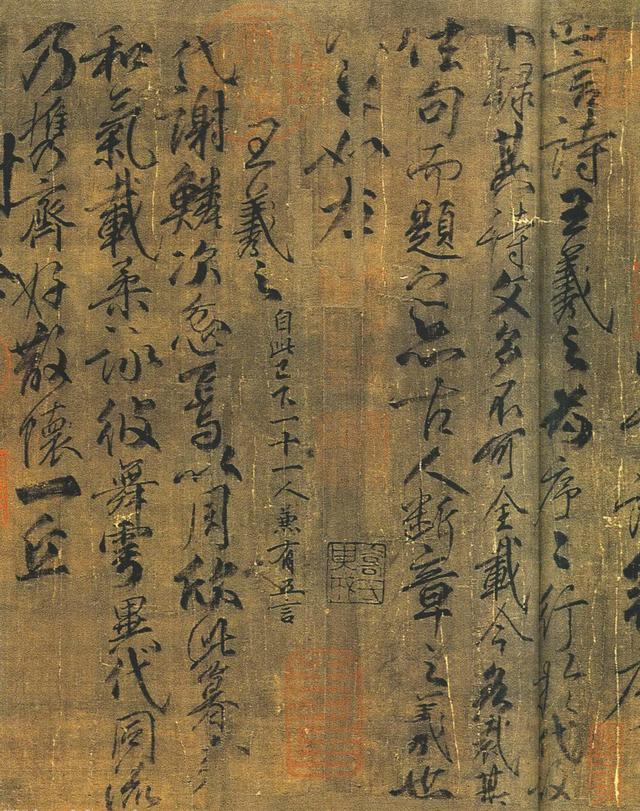 四言詩王羲之為序〻行於代故
不錄其詩文多不可全載今各裁其
佳句而題之亦古人斷章之義也
如左
王羲之 自此已下一十一人兼有五言
代謝鱗次忽焉以周欣此暮春
和氣載柔詠彼舞雩異代同流
乃携齊好散懷一丘